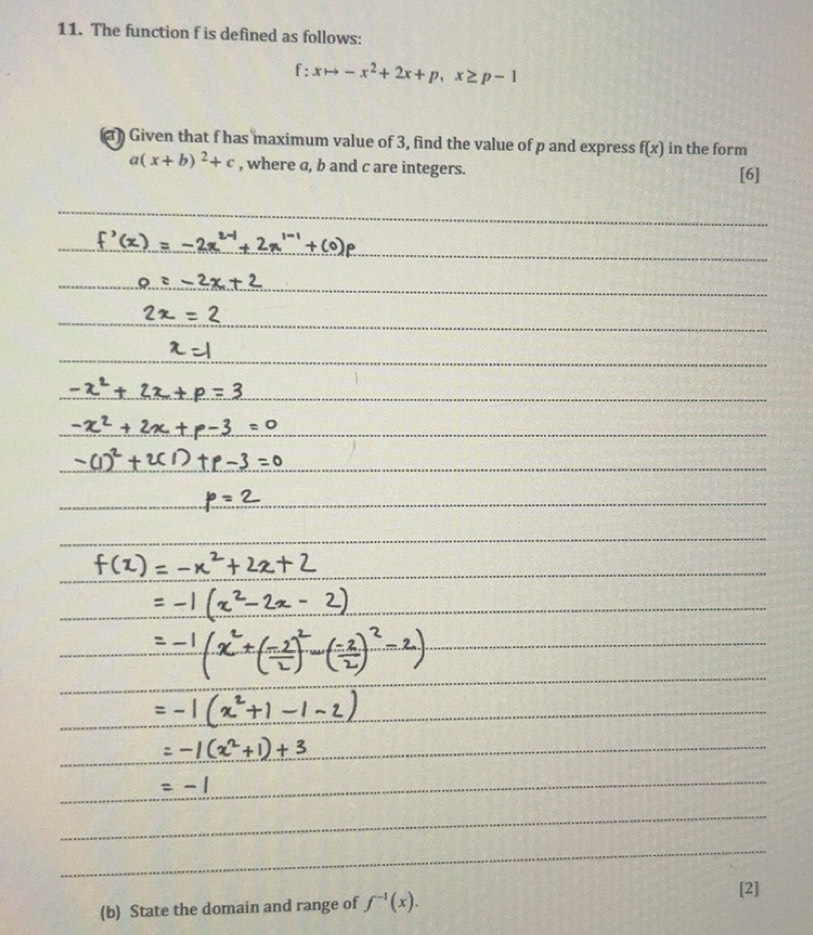 11. The function f is defined as follows:
f : x ↦ − x² + 2x + p, x ≥ p − 1
(a) Given that f has maximum value of 3, find the value of p and express f(x) in the form
a( x + b) ² + c , where a, b and c are integers.
[6]
f'(x) = -2x²⁻¹ + 2x¹⁻¹ + (0)p
0 = -2x + 2
2x = 2
x = 1
-x² + 2x + p = 3
-x² + 2x + p - 3 = 0
-(1)² + 2(1) + p - 3 = 0
p = 2
f(x) = -x² + 2x + 2
= -1 (x² - 2x - 2)
= -1 (x² + (-2/2)² - (-2/2)² - 2)
= -1 (x² + 1 - 1 - 2)
= -1 (x² + 1) + 3
= -1
[2]
(b) State the domain and range of f⁻¹(x).